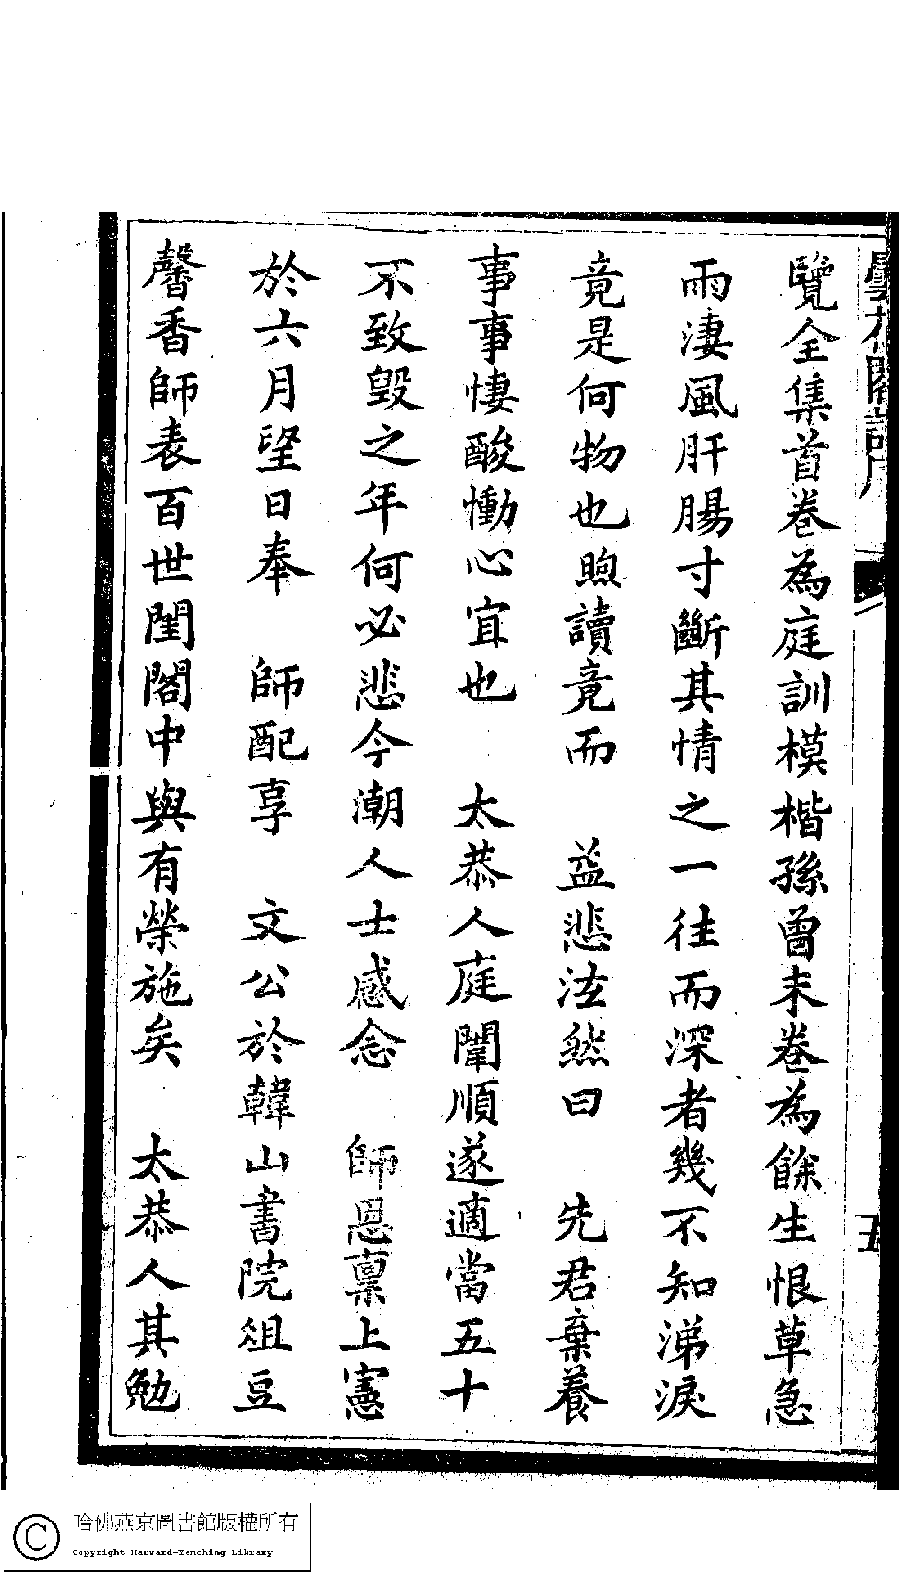 覽全集首卷為庭訓模楷孫曾末卷為餘生恨草急
雨淒風肝腸寸斷其情之一往而深者幾不知涕淚
竟是何物也煦讀竟而　益悲泫然曰　先君棄養
事事悽酸慟心宜也　太恭人庭闈順遂適當五十
不致毀之年何必悲今潮人士感念　師恩稟上憲
於六月望日奉　師配享　文公於韓山書院俎豆
馨香師表百世閨閣中與有榮施矣　太恭人其勉
五
哈佛燕京圖書館版權所有
Copyright Harvard-Yenching Library